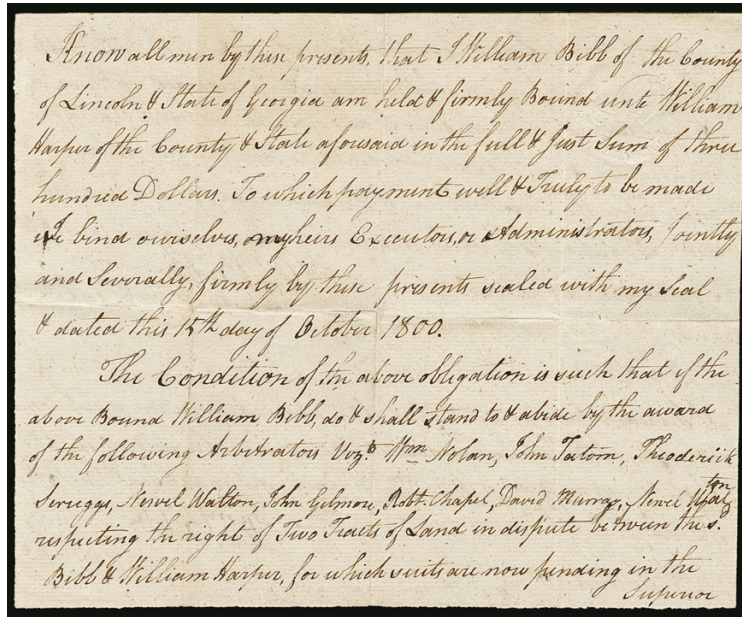 Know all men by these presents, that I William Bibb of the County
of Lincoln & State of Georgia am held & firmly Bound unto William
Harper of the County & State aforesaid in the full & Just Sum of three
hundred Dollars. To which payment well & Truly to be made
We bind ourselves, my heirs Executors, or Administrators, Jointly
and Severally, firmly by these presents sealed with my Seal
& dated this 15th day of October 1800.
The Condition of the above obligation is such that if the
above Bound William Bibb, do & shall stand to & abide by the award
of the following Arbitrators Vizt. Wm Nolan, John Tatom, Theoderick
Scruggs, Newel Walton, John Gilmore, Robt. Chapel, David Murray, Newel
respecting the right of Two Tracts of Land in dispute between the s.
Bibb & William Harper, for which suits are now pending in the
Superior